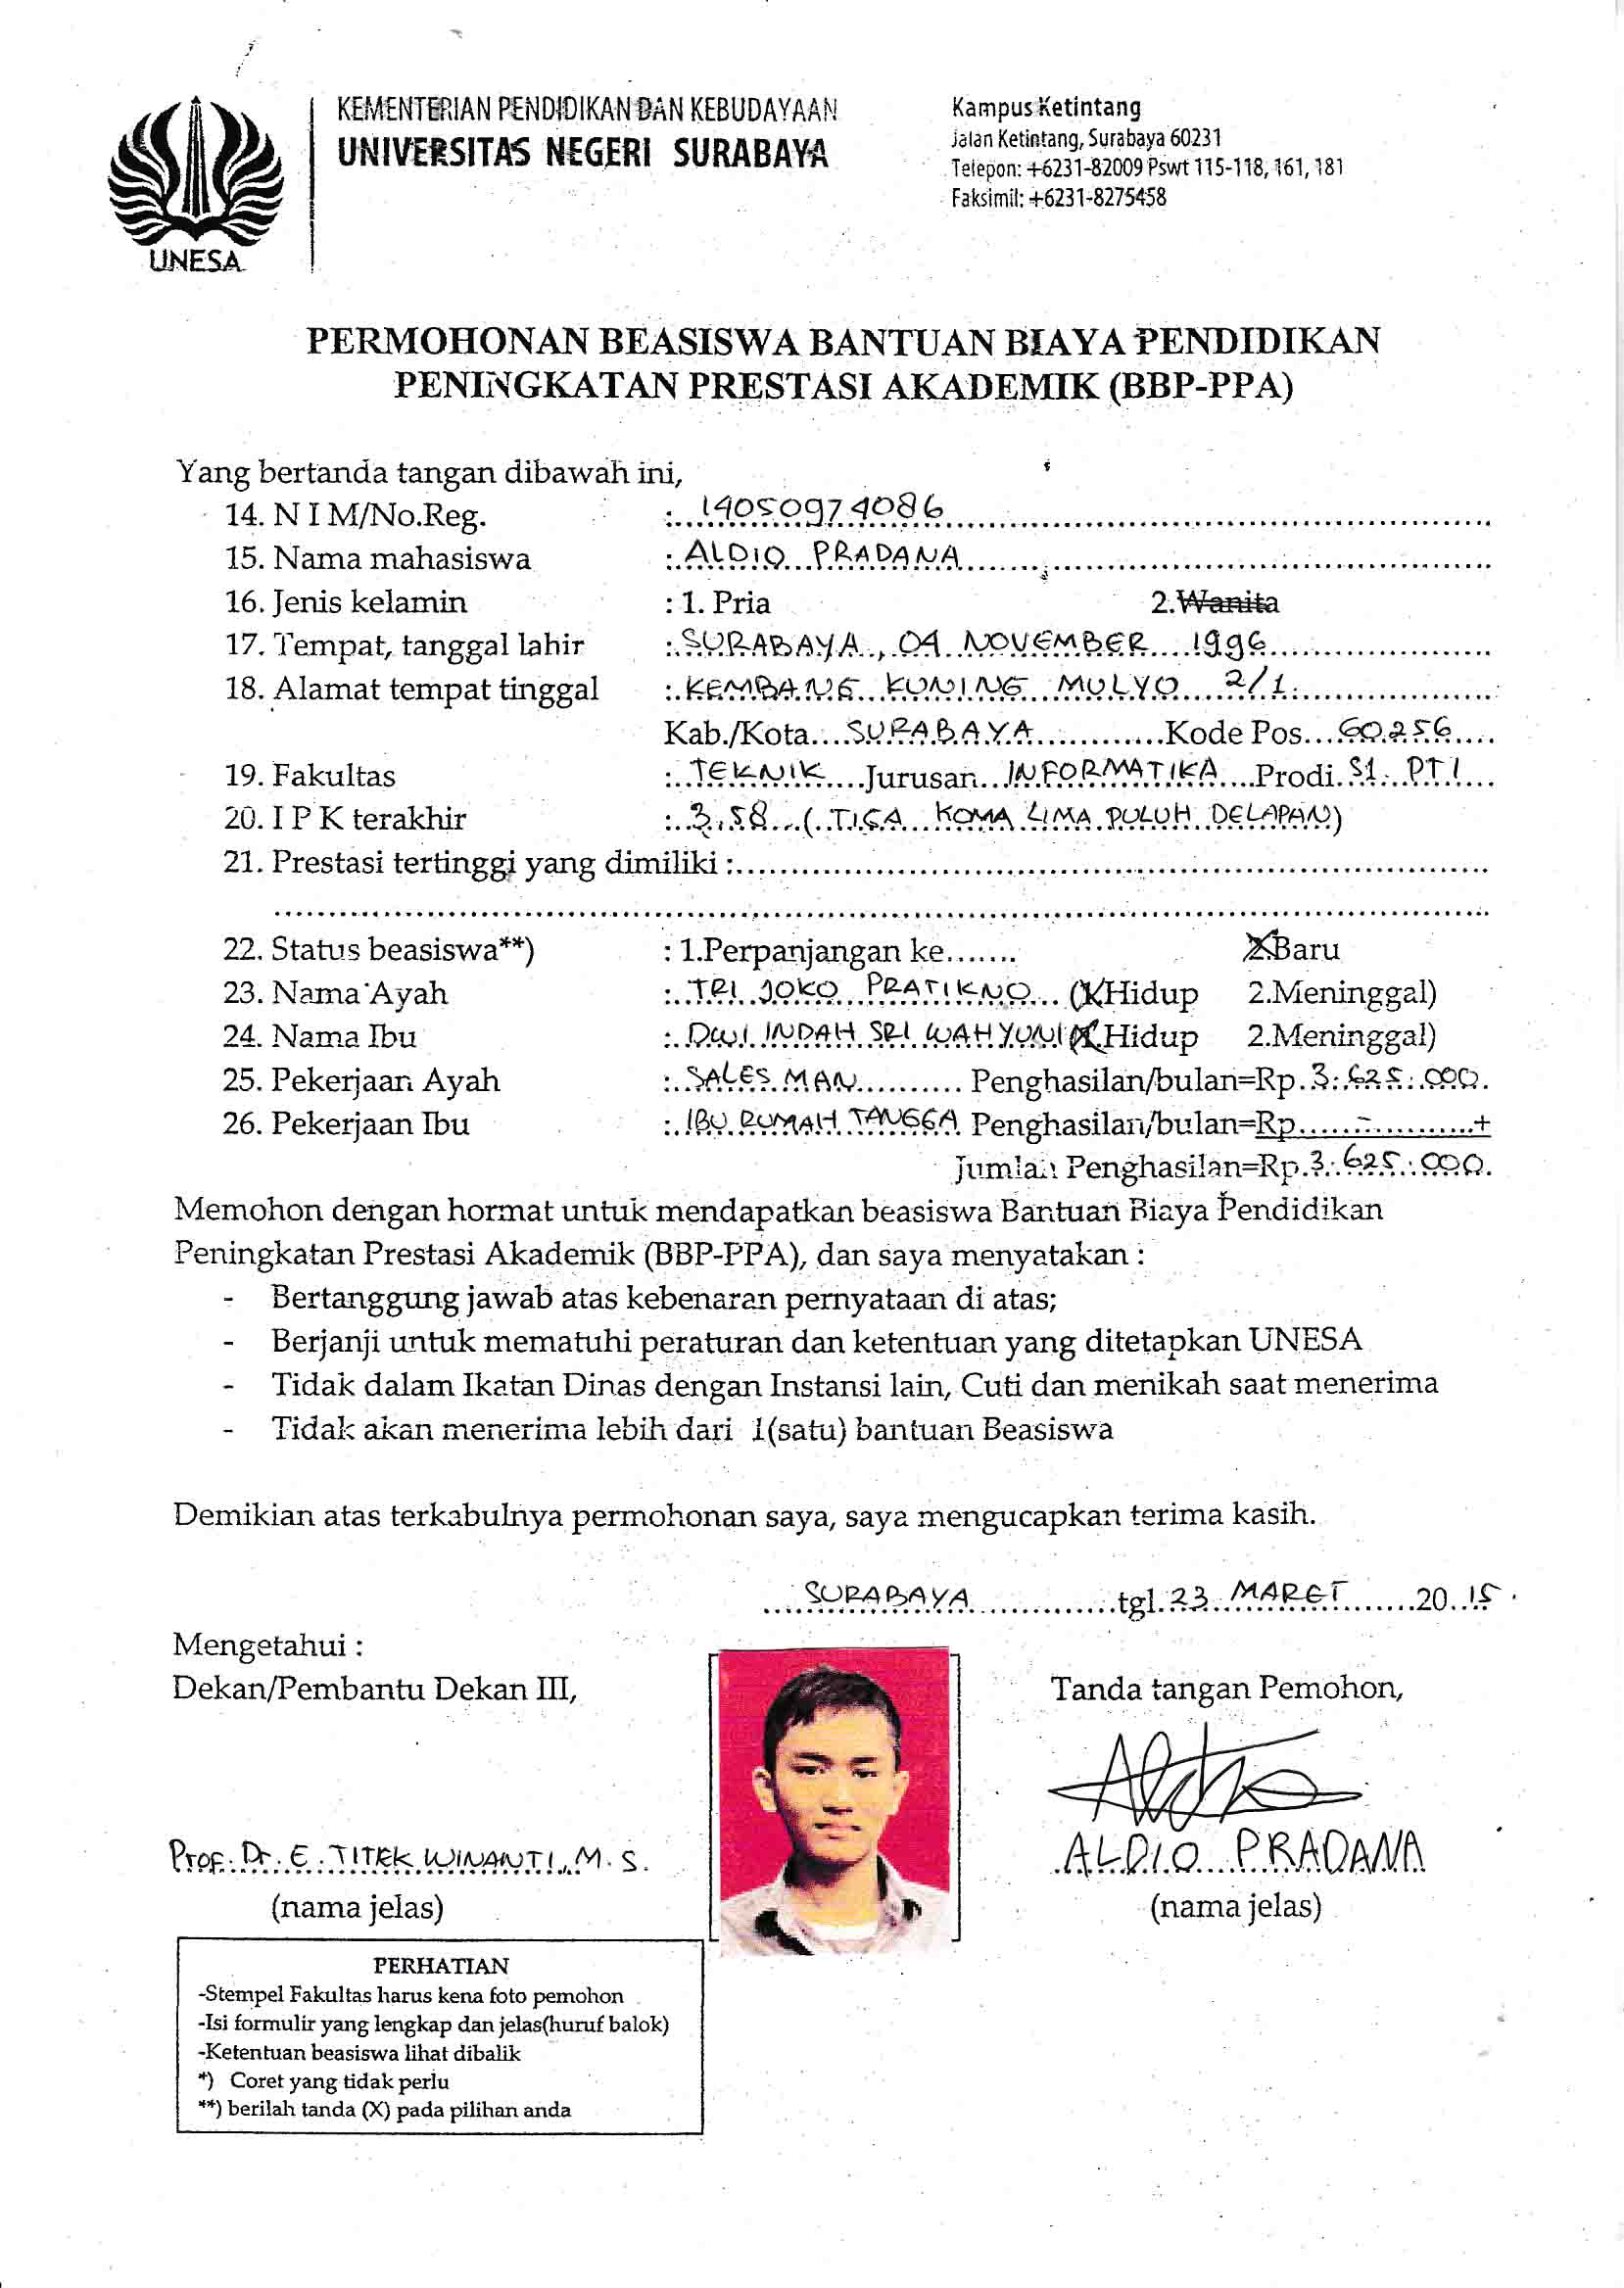 KEMENTERIAN PENDIDIKAN DAN KEBUDAYAAN
UNIVERSITAS NEGERI SURABAYA
Kampus Ketintang
Jalan Ketintang, Surabaya 60231
Telepon: +6231-82009 Pswt 115-118, 161, 181
Faksimil: +6231-8275458
UNESA
PERMOHONAN BEASISWA BANTUAN BIAYA PENDIDIKAN
PENINGKATAN PRESTASI AKADEMIK (BBP-PPA)
Yang bertanda tangan dibawah ini,
14. N I M/No.Reg. : 14050974086
15. Nama mahasiswa : ALDIO PRADANA
16. Jenis kelamin : 1. Pria 2. Wanita
17. Tempat, tanggal lahir : SURABAYA, 04 NOVEMBER 1996
18. Alamat tempat tinggal : KEMBANG KUNING MULYO 2/1
Kab./Kota SURABAYA Kode Pos 60256
19. Fakultas : TEKNIK Jurusan INFORMATIKA Prodi S1 PTI
20. I P K terakhir : 3,58 (TIGA KOMA LIMA PULUH DELAPAN)
21. Prestasi tertinggi yang dimiliki :
22. Status beasiswa**) : 1.Perpanjangan ke....... 2.Baru
23. Nama Ayah : TRI JOKO PRATIKNO (1.Hidup 2.Meninggal)
24. Nama Ibu : DWI INDAH SRI WAHYUNI (1.Hidup 2.Meninggal)
25. Pekerjaan Ayah : SALES MAN Penghasilan/bulan=Rp. 3.625.000.
26. Pekerjaan Ibu : IBU RUMAH TANGGA Penghasilan/bulan=Rp - +
Jumlah Penghasilan=Rp. 3.625.000.
Memohon dengan hormat untuk mendapatkan beasiswa Bantuan Biaya Pendidikan
Peningkatan Prestasi Akademik (BBP-PPA), dan saya menyatakan :
- Bertanggung jawab atas kebenaran pernyataan di atas;
- Berjanji untuk mematuhi peraturan dan ketentuan yang ditetapkan UNESA
- Tidak dalam Ikatan Dinas dengan Instansi lain, Cuti dan menikah saat menerima
- Tidak akan menerima lebih dari 1(satu) bantuan Beasiswa
Demikian atas terkabulnya permohonan saya, saya mengucapkan terima kasih.
SURABAYA tgl. 23 MARET 2015.
Mengetahui :
Dekan/Pembantu Dekan III,
Tanda tangan Pemohon,
Prof. Dr. E. TITEK WINANTI, M.S.
(nama jelas)
ALDIO PRADANA
(nama jelas)
PERHATIAN
-Stempel Fakultas harus kena foto pemohon
-Isi formulir yang lengkap dan jelas(huruf balok)
-Ketentuan beasiswa lihat dibalik
*) Coret yang tidak perlu
**) berilah tanda (X) pada pilihan anda